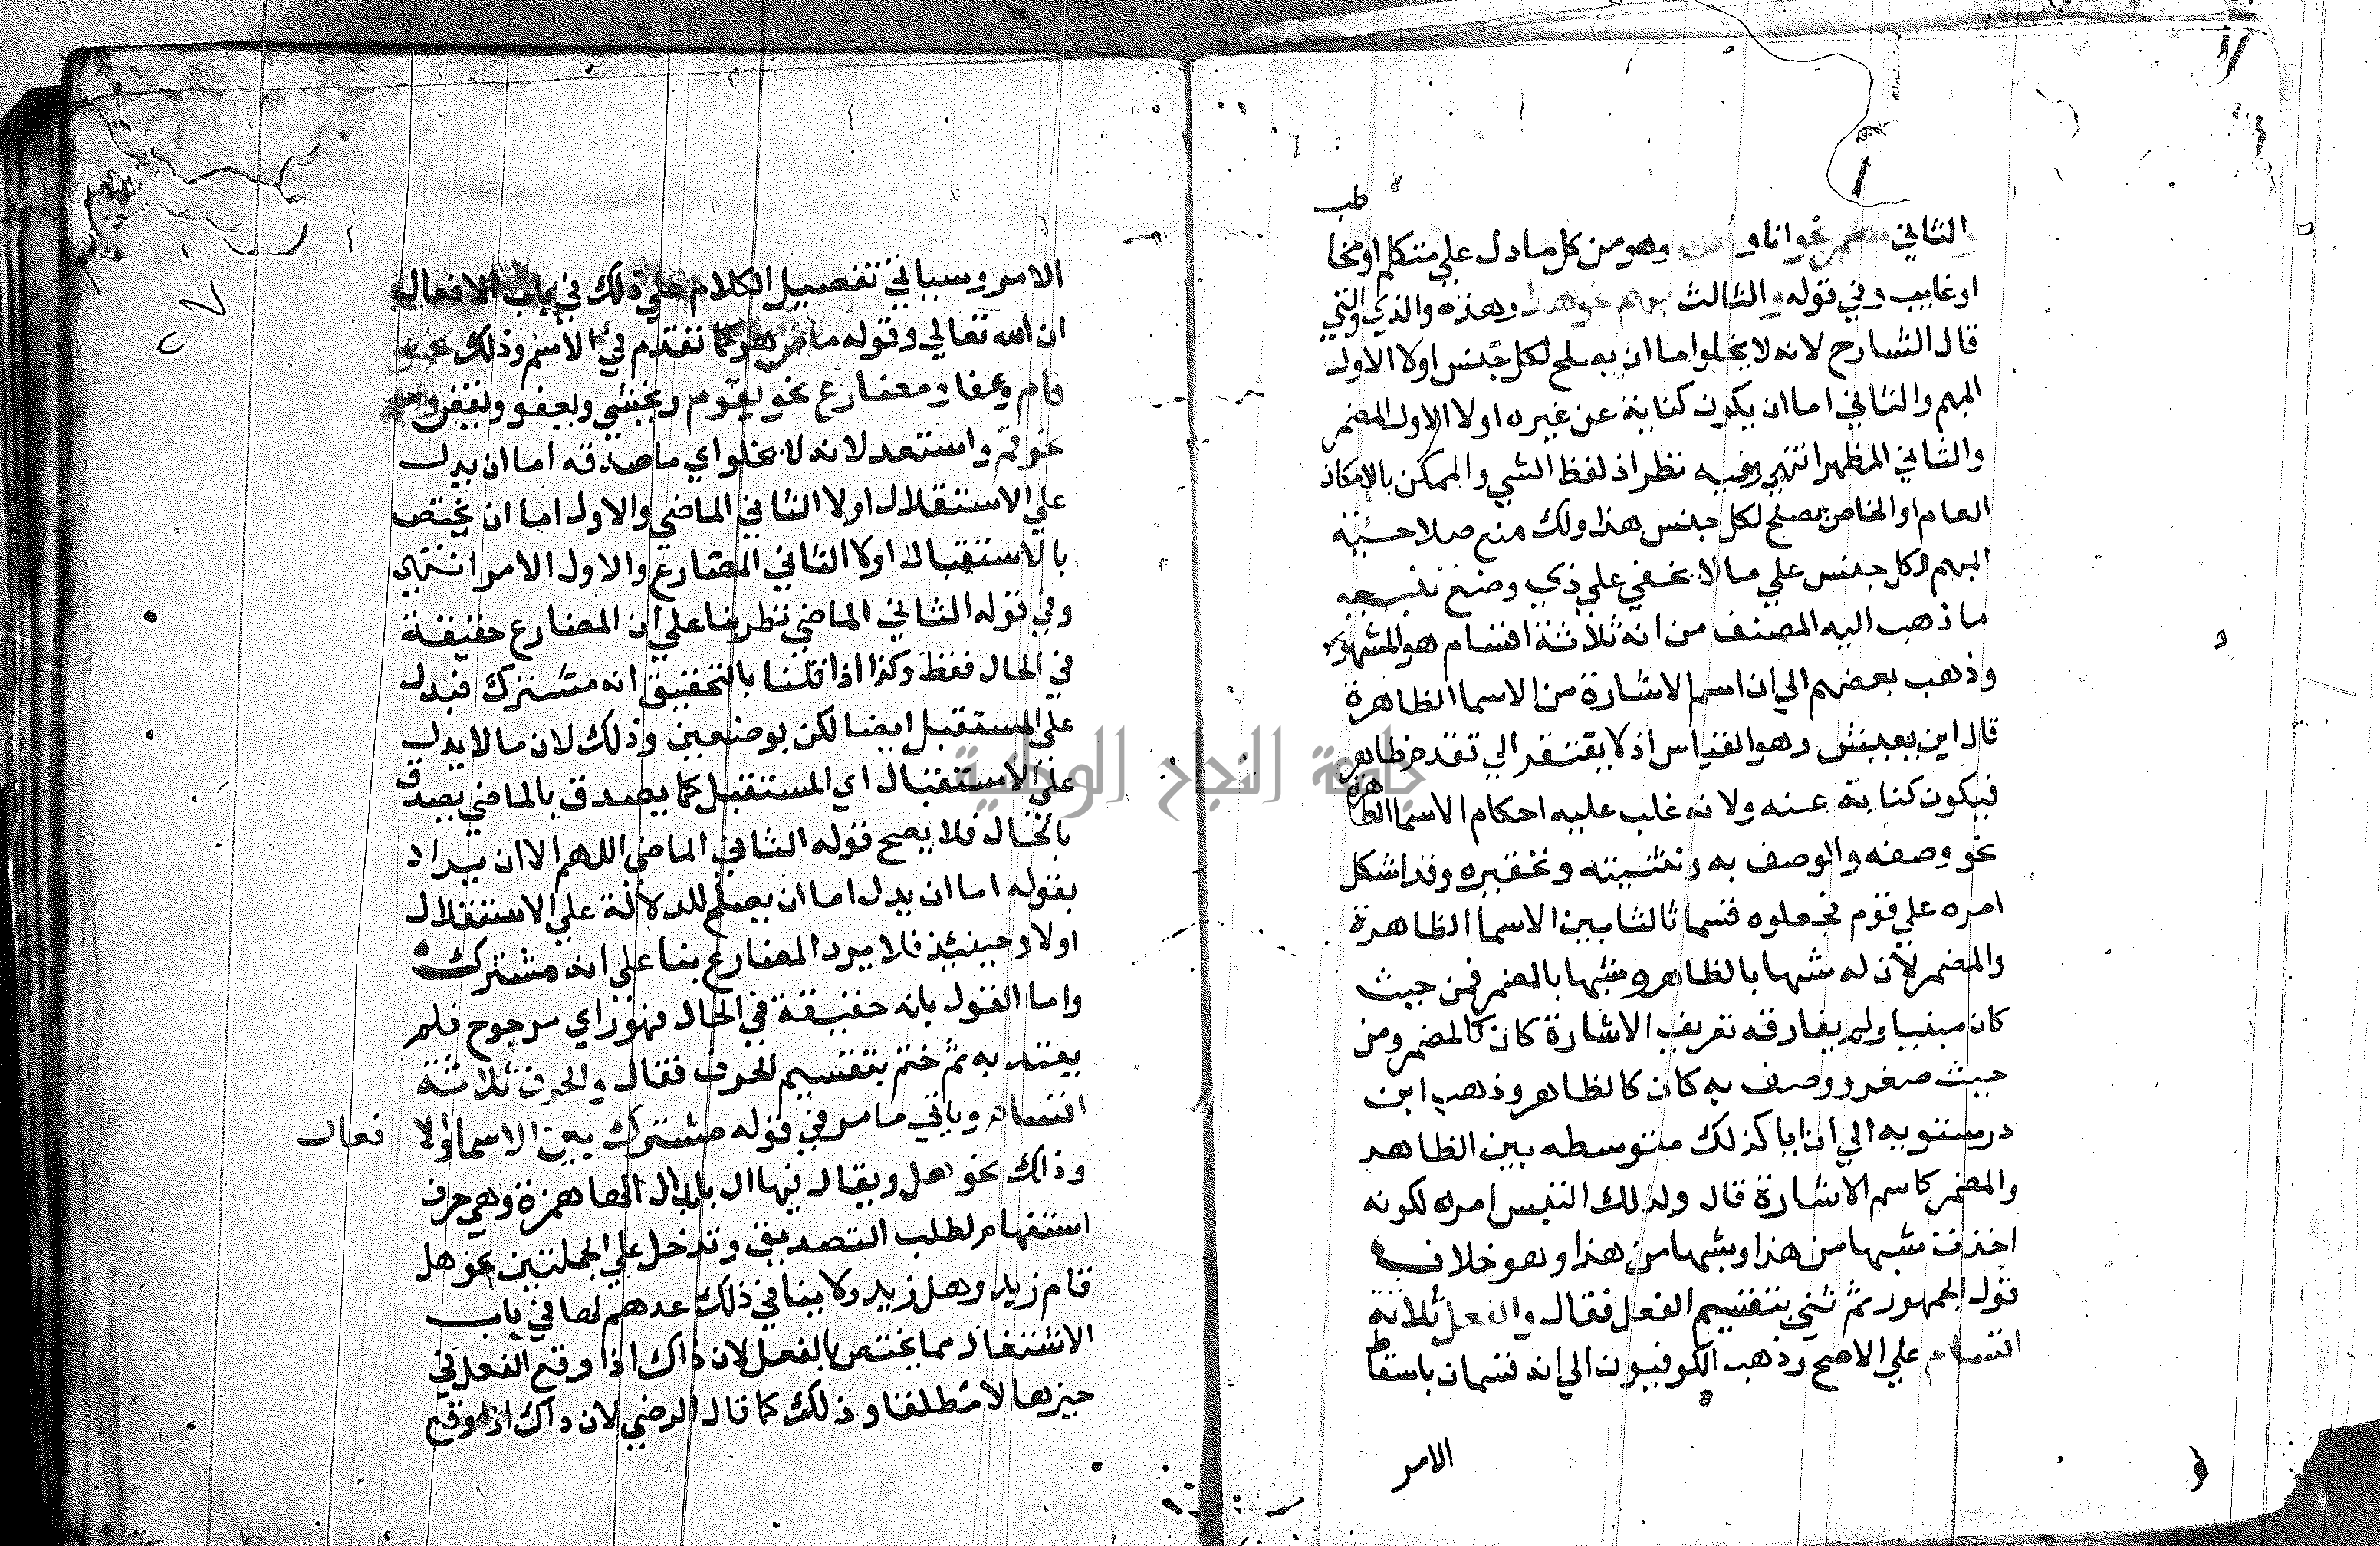 طب
والثاني مضمر نحو انا و وهو من كل ما دل علي متكلم او مخا
او غايب وفي قوله والثالث مبهم نحو هذا وهذه والذي والتي
قال الشارح لانه لا يخلوا اما ان يصلح لكل جنس اولا الاول
المبهم والثاني اما ان يكون كناية عن غيره اولا الاول المضمر
والثاني المظهر انتهي وفيه نظر اذ لفظ الشي والممكن بالامكان
العام او الخاص يصلح لكل جنس هذا ولك منع صلاحية
المبهم لكل جنس علي ما لا يخفي علي ذي وضع
ما ذهب اليه المصنف من انه ثلاثة اقسام هو المشهور
وذهب بعضهم الي ان اسم الاشارة من الاسما الظاهرة
قال ابن يعيش وهو القياس اذ لا يفتقر الي تقدم ظاهر
فيكون كناية عنه ولانه غلب عليه احكام الاسما الظاهرة
نحو وصفه والوصف به وتثنيته وتحقيره وقد اشكل
امره علي قوم فجعلوه قسما ثالثا بين الاسما الظاهرة
والمضمر لان له شبها بالظاهر وشبها بالمضمر فمن حيث
كان مبنيا ولم يفارقه تعريف الاشارة كان كالمضمر ومن
حيث صغر ووصف به كان كالظاهر وذهب ابن
درستويه الي ان ايا كذلك متوسطه بين الظاهر
والمضمر كاسم الاشارة قال ولذلك التبس امره لكونه
اخذت شبها من هذا وشبها من هذا وهو خلاف
قول الجمهور ثم ثني بتقسيم الفعل فقال والفعل ثلاثة
اقسام علي الاصح وذهب الكوفيون الي انه قسمان باسقاط
الامر
٢٧
الامر وسياتي تفصيل الكلام علي ذلك في باب الافعال
ان الله تعالي وقوله ماض هو كما تقدم في الاسم وذلك نحو
قام وعفا ومضارع نحو يقوم ويختشي ويعفو وامر
نحو قم واستعد لانه لا يخلو اي ما صدقه اما ان يدل
علي الاستقلال اولا الثاني الماضي والاول اما ان يختص
بالاستقبال اولا الثاني المضارع والاول الامر انتهي
وفي قوله الثاني الماضي نظر بنا علي ان المضارع حقيقة
في الحال فقط وكذا اذا قلنا بالتحقيق انه مشترك فيدل
علي المستقبل ايضا لكن بوضعين وذلك لان ما لا يدل
علي الاستقبال اي المستقبل كما يصدق بالماضي يصدق
بالحال فلا يصح قوله الثاني الماضي اللهم الا ان يراد
بقوله اما ان يدل اما ان يصلح للدلالة علي الاستقلال
اولا وحينئذ فلا يرد المضارع بنا علي انه مشترك
واما القول بانه حقيقة في الحال فهو راي مرجوح فلم
يعتد به ثم ختم بتقسيم الحرف فقال والحرف ثلاثة
اقسام وياتي ما مر في قوله مشترك بين الاسما والا فعال
وذلك نحو هل ويقال فيها ال بابدال الها همزة وهي حرف
استفهام لطلب التصديق وتدخل علي الجملتين نحو هل
قام زيد وهل زيد ولا ينافي ذلك عدهم لها في باب
الاشتغال مما يختص بالفعل لان ذاك اذا وقع الفعل في
حيزها لا مطلقا وذلك كما قال الرضي لان ذاك اذا وقع